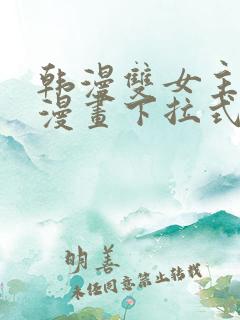 韩漫雙女主
漫畫下拉式
明善
未经同意禁止转载